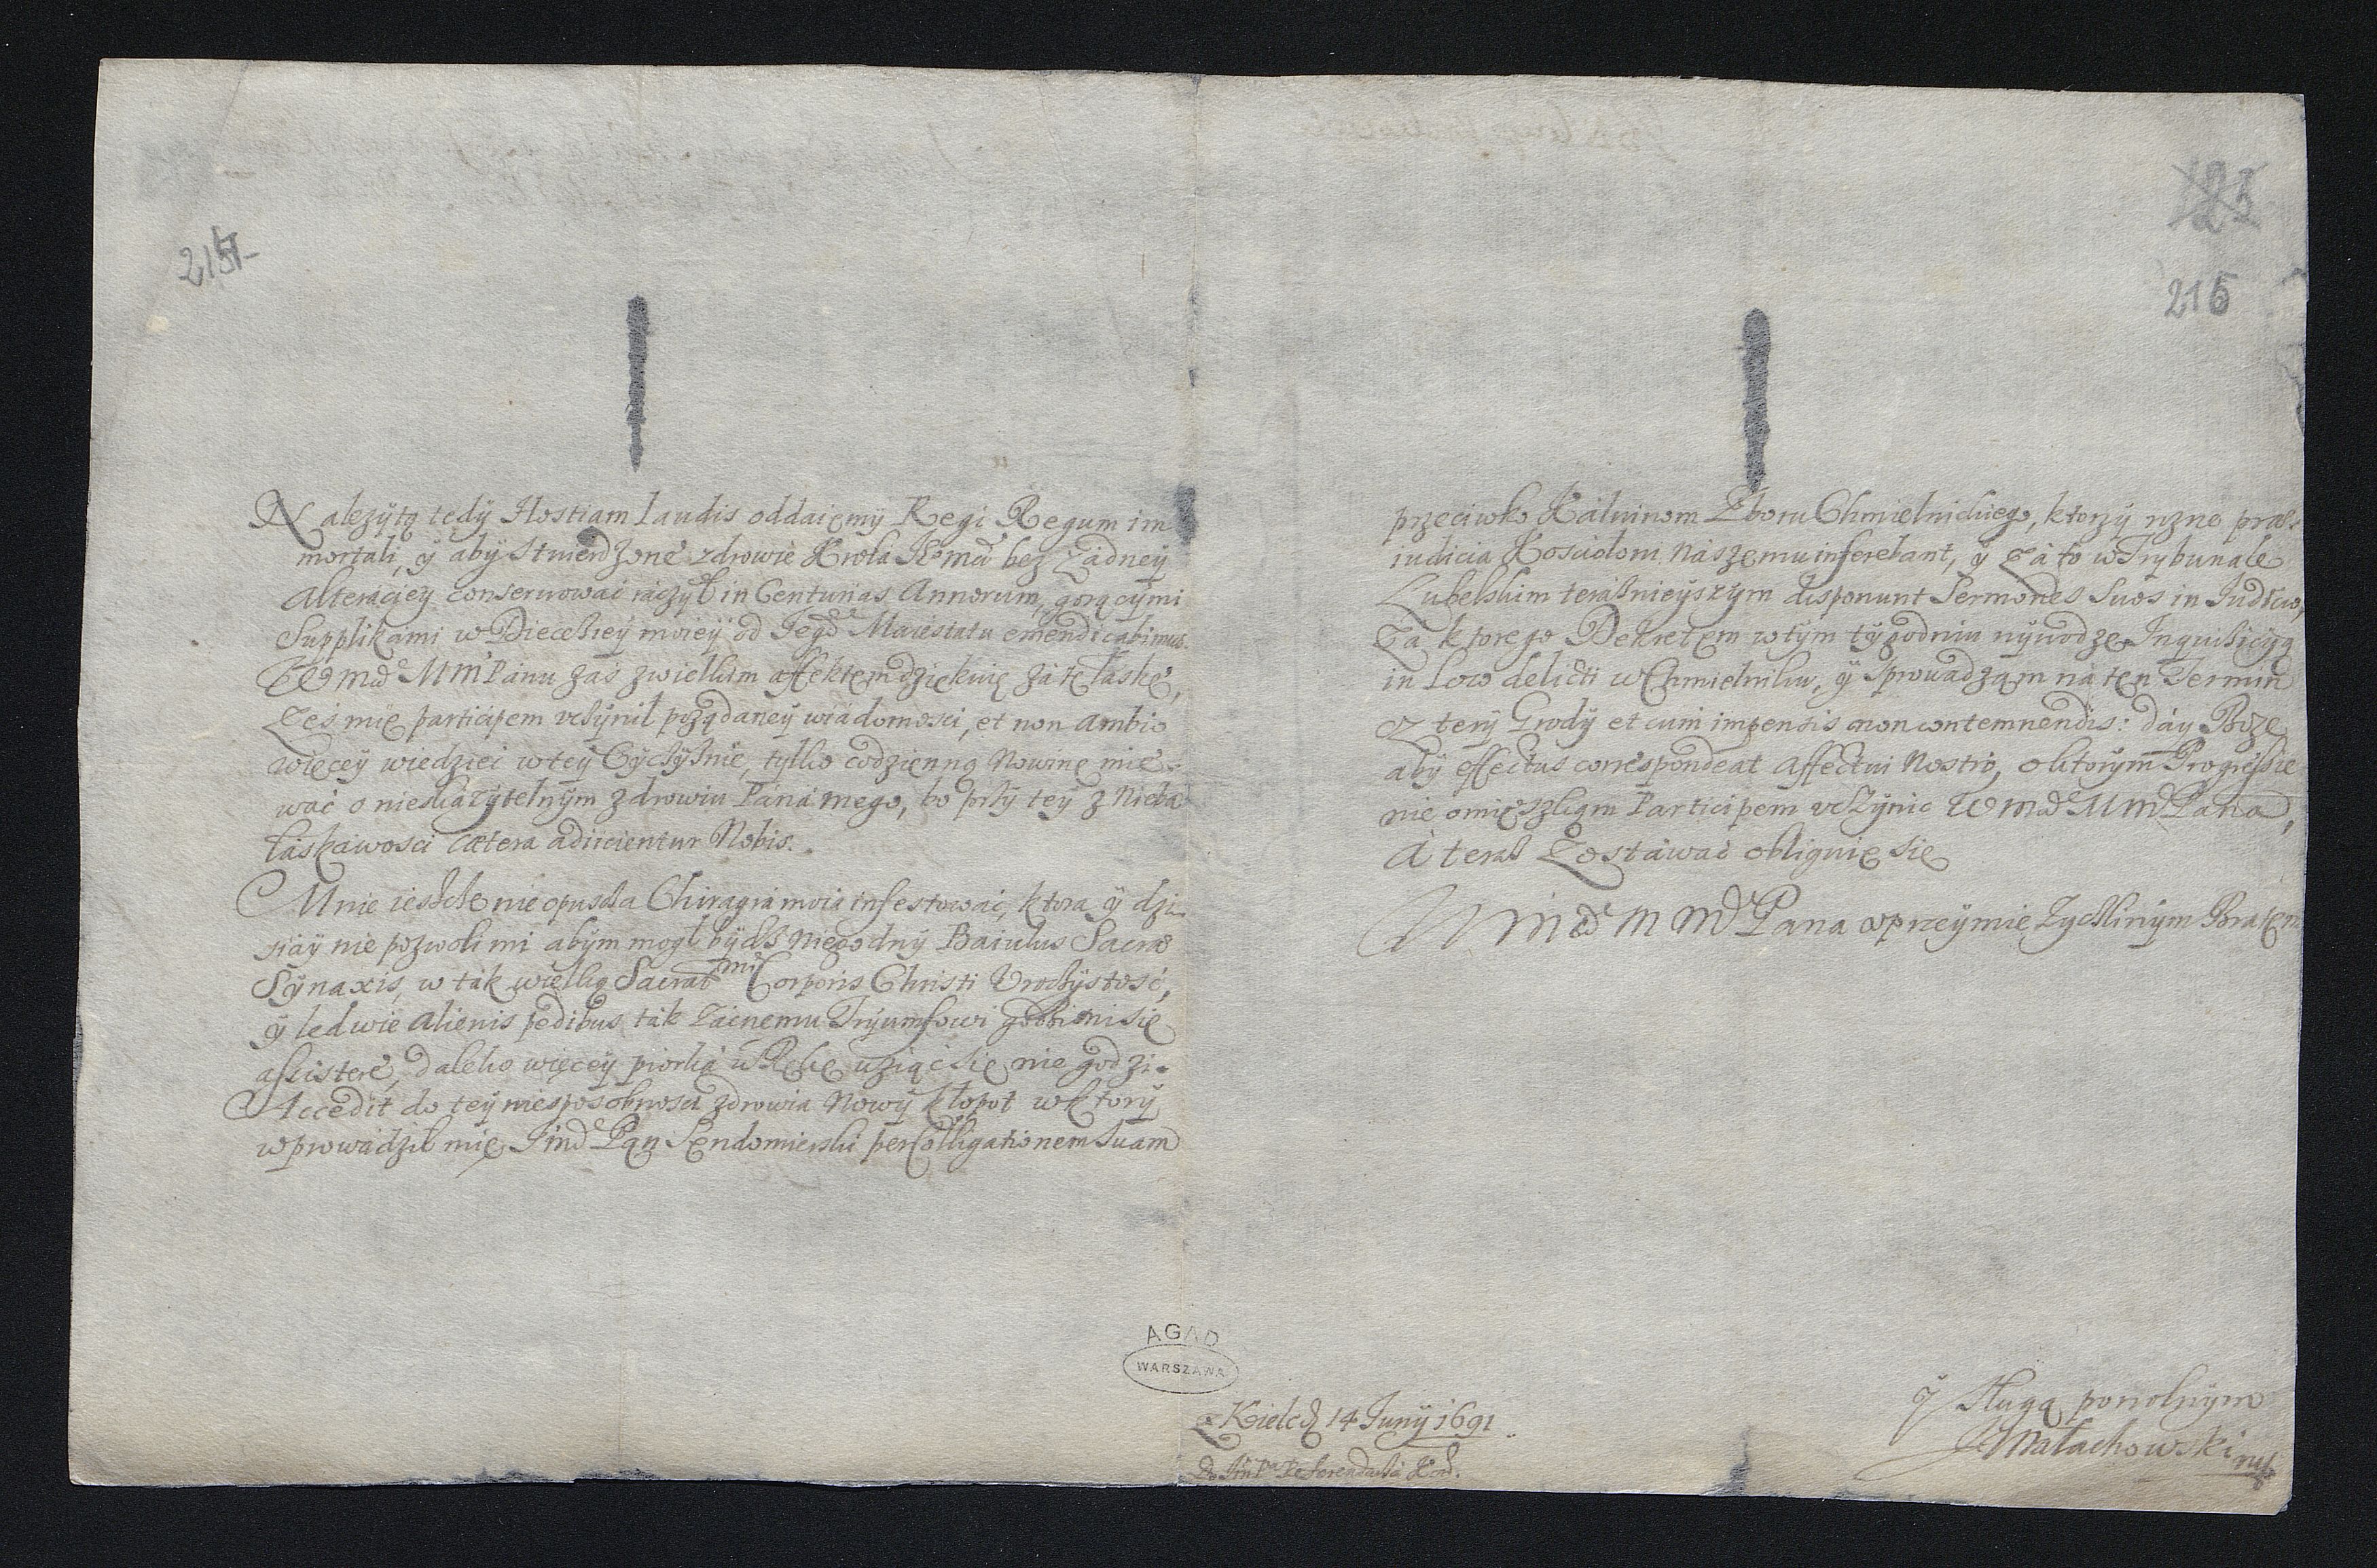 215
Należytą tedy Hostiam laudis oddaiemy Regi Regum im
mortali, ÿ aby stwierdzone zdrowie Krola Je° mći bez żadneÿ
Alteracieÿ conserwować raczÿł in Centurias Annorum, gorącymi
Supplikami w Dieceziey moieÿ od Jeg° Maiestatu emendicabimus.
WM mći MMPanu zaś z wielkim affektem dziękuię zá tę łaskę,
Żeś mię participem vczÿnił pożądaneÿ wiádomości, et non ambio
więceÿ wiedzieć w teÿ Oyczyźnie, tylko codzienną Nowinę mie-
wać o nieskazÿtelnÿm zdrowiu Páná mego, bo przÿ teÿ z Nieba
łáskawości cætera adiicientur Nobis.
Mnie ieszcze nie opuszcza Chiragra moiá infestowáć, ktora ÿ dzi-
siáÿ nie pozwoli mi abÿm mogł bÿdź niegodnÿ Baiulus Sacræ
Sÿnaxis, w ták wielką Sacrat mi Corporis Christi Vroczÿstość,
ÿ ledwie alienis pedibus ták zacnemu Trÿumfowi godzi mi się
assistere, daleko więceÿ piorká w Rękę wziąć się nie godzi.
Accedit do teÿ niesposobności zdrowia Nowÿ kłopot w ktorÿ
wprowádził mię Jmć Pan Sendomierski per Colligationem suam
121
215
przeciwko Kálwinom Zboru Chmielnickiego, ktorzÿ rżne præ-
iudicia Kościołom nászemu inferebant, ÿ zá to w Trybunale
Lubelskim teraźnieÿszym disponunt Sermones suos in Iudicio,
Zá ktorego Dekretem w tÿm tÿgodniu wÿwodzę Inquisicÿą
in loco delicti w Chmielniku, ÿ sprowadzam ná ten Termin
czterÿ Grodÿ et cum impensis non contemnendis: dáÿ Boże
abÿ effectus correspondeat affectui Nostro, o ktorÿm Progressie
nie omieszkąm Participem vczÿnić WM mći MMPana,
Á teraz Zostáwać obliguię się
WM mći M Mć Pana vprzeÿmie Życzliwÿm Bratem
ÿ Sługą powolnÿm
JMałachowski mp
Z Kielc d 14 Junÿ 1691
Do Jm Pa Referendarza Kor.
AGAD
WARSZAWA